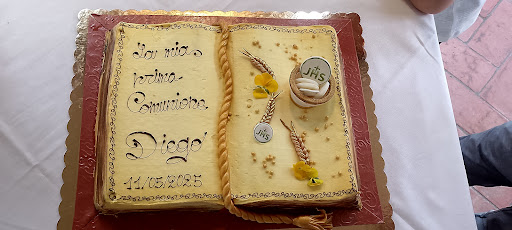 La mia
prima
Comunione
Diego
11/05/2025
JHS
JHS